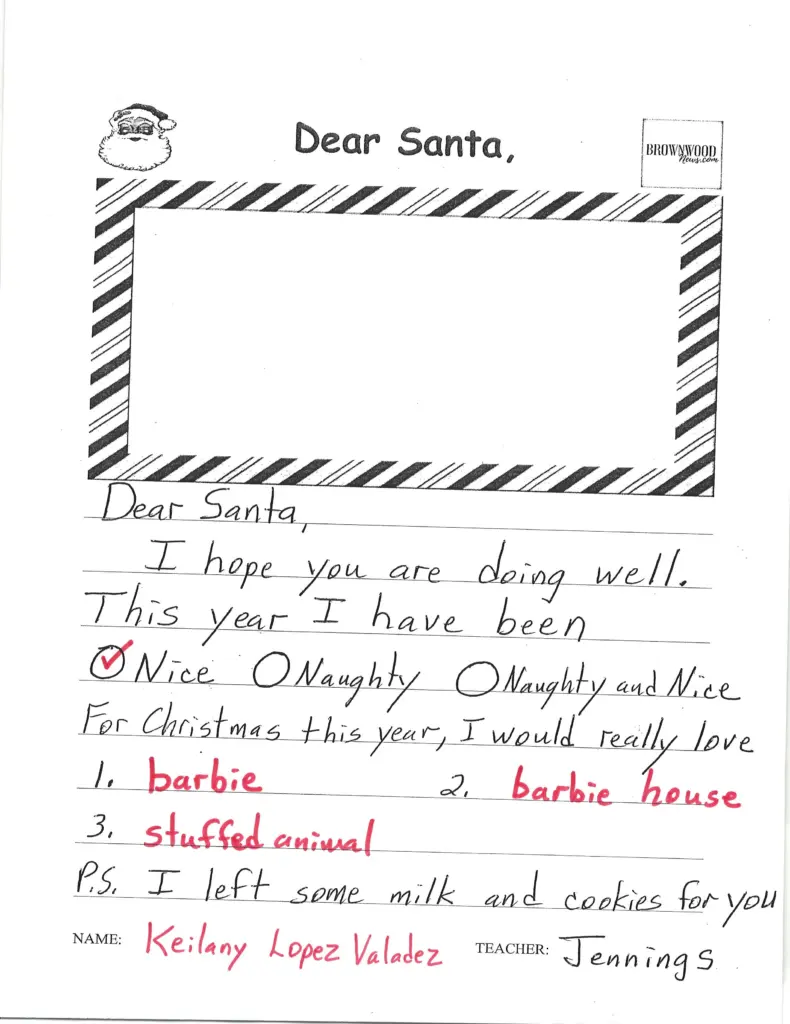 Dear Santa,
BROWNWOOD
News.com
Dear Santa,
I hope you are doing well.
This year I have been
Nice Naughty Naughty and Nice
For Christmas this year, I would really love
1. barbie 2. barbie house
3. stuffed animal
P.S. I left some milk and cookies for you
NAME: Keilany Lopez Valadez TEACHER: Jennings